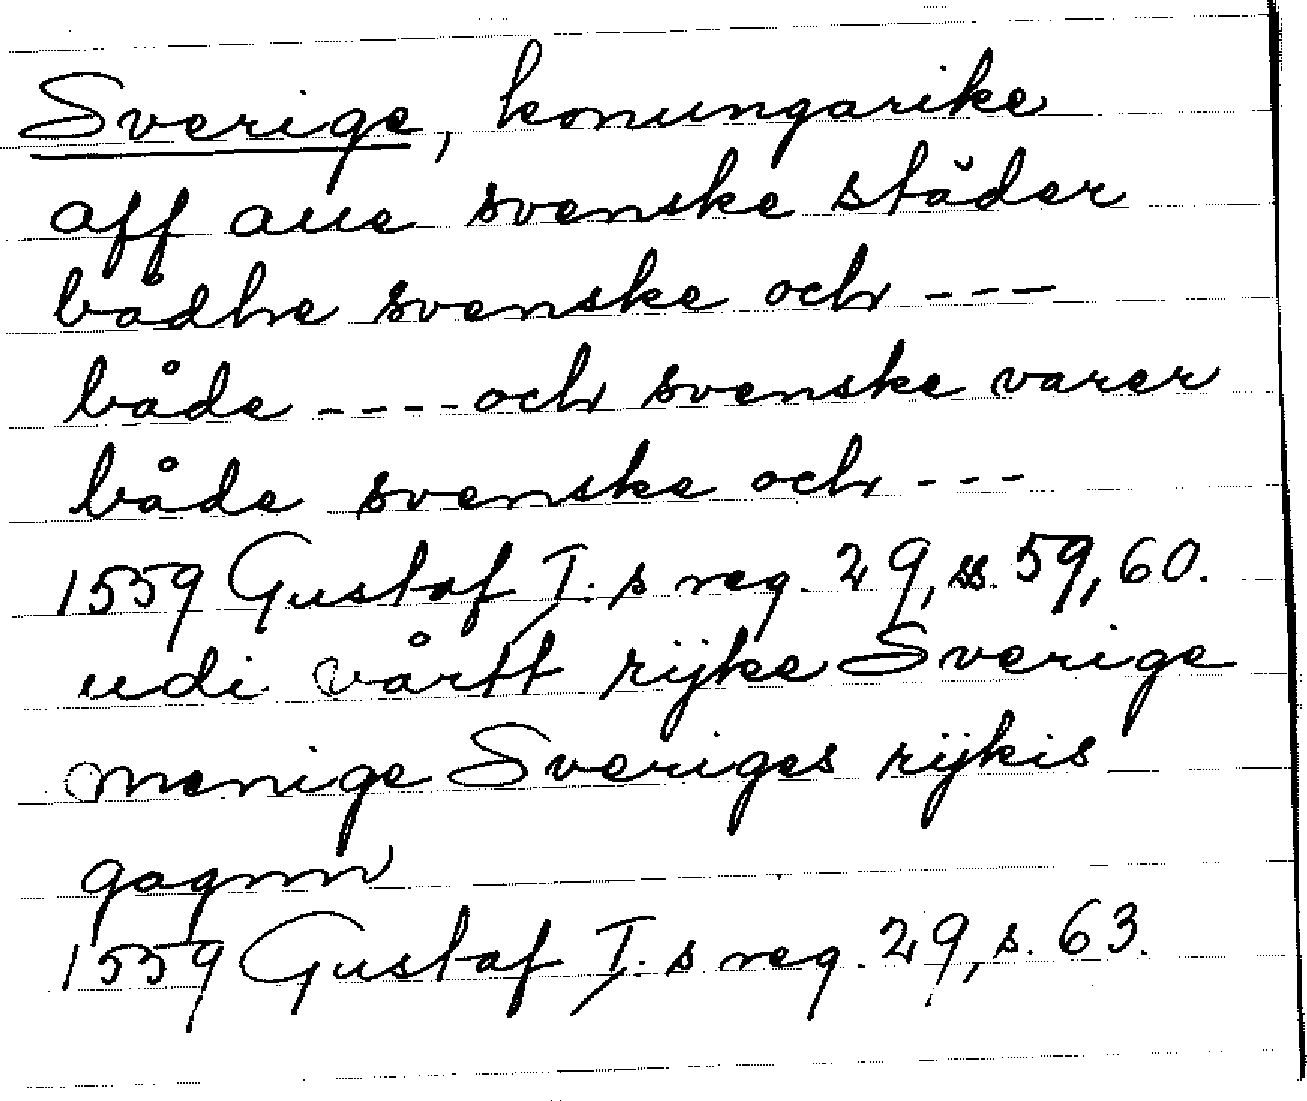 Sverige, konungarike
aff alle svenske städer
bådhe svenske och ---
både ---- och svenske varer
både svenske och ---
1559 Gustaf I:s reg. 29, ss. 59, 60.
udi vårtt rijke Sverige
menige Sveriges rijkis
gagnn
1559 Gustaf I:s reg. 29, s. 63.